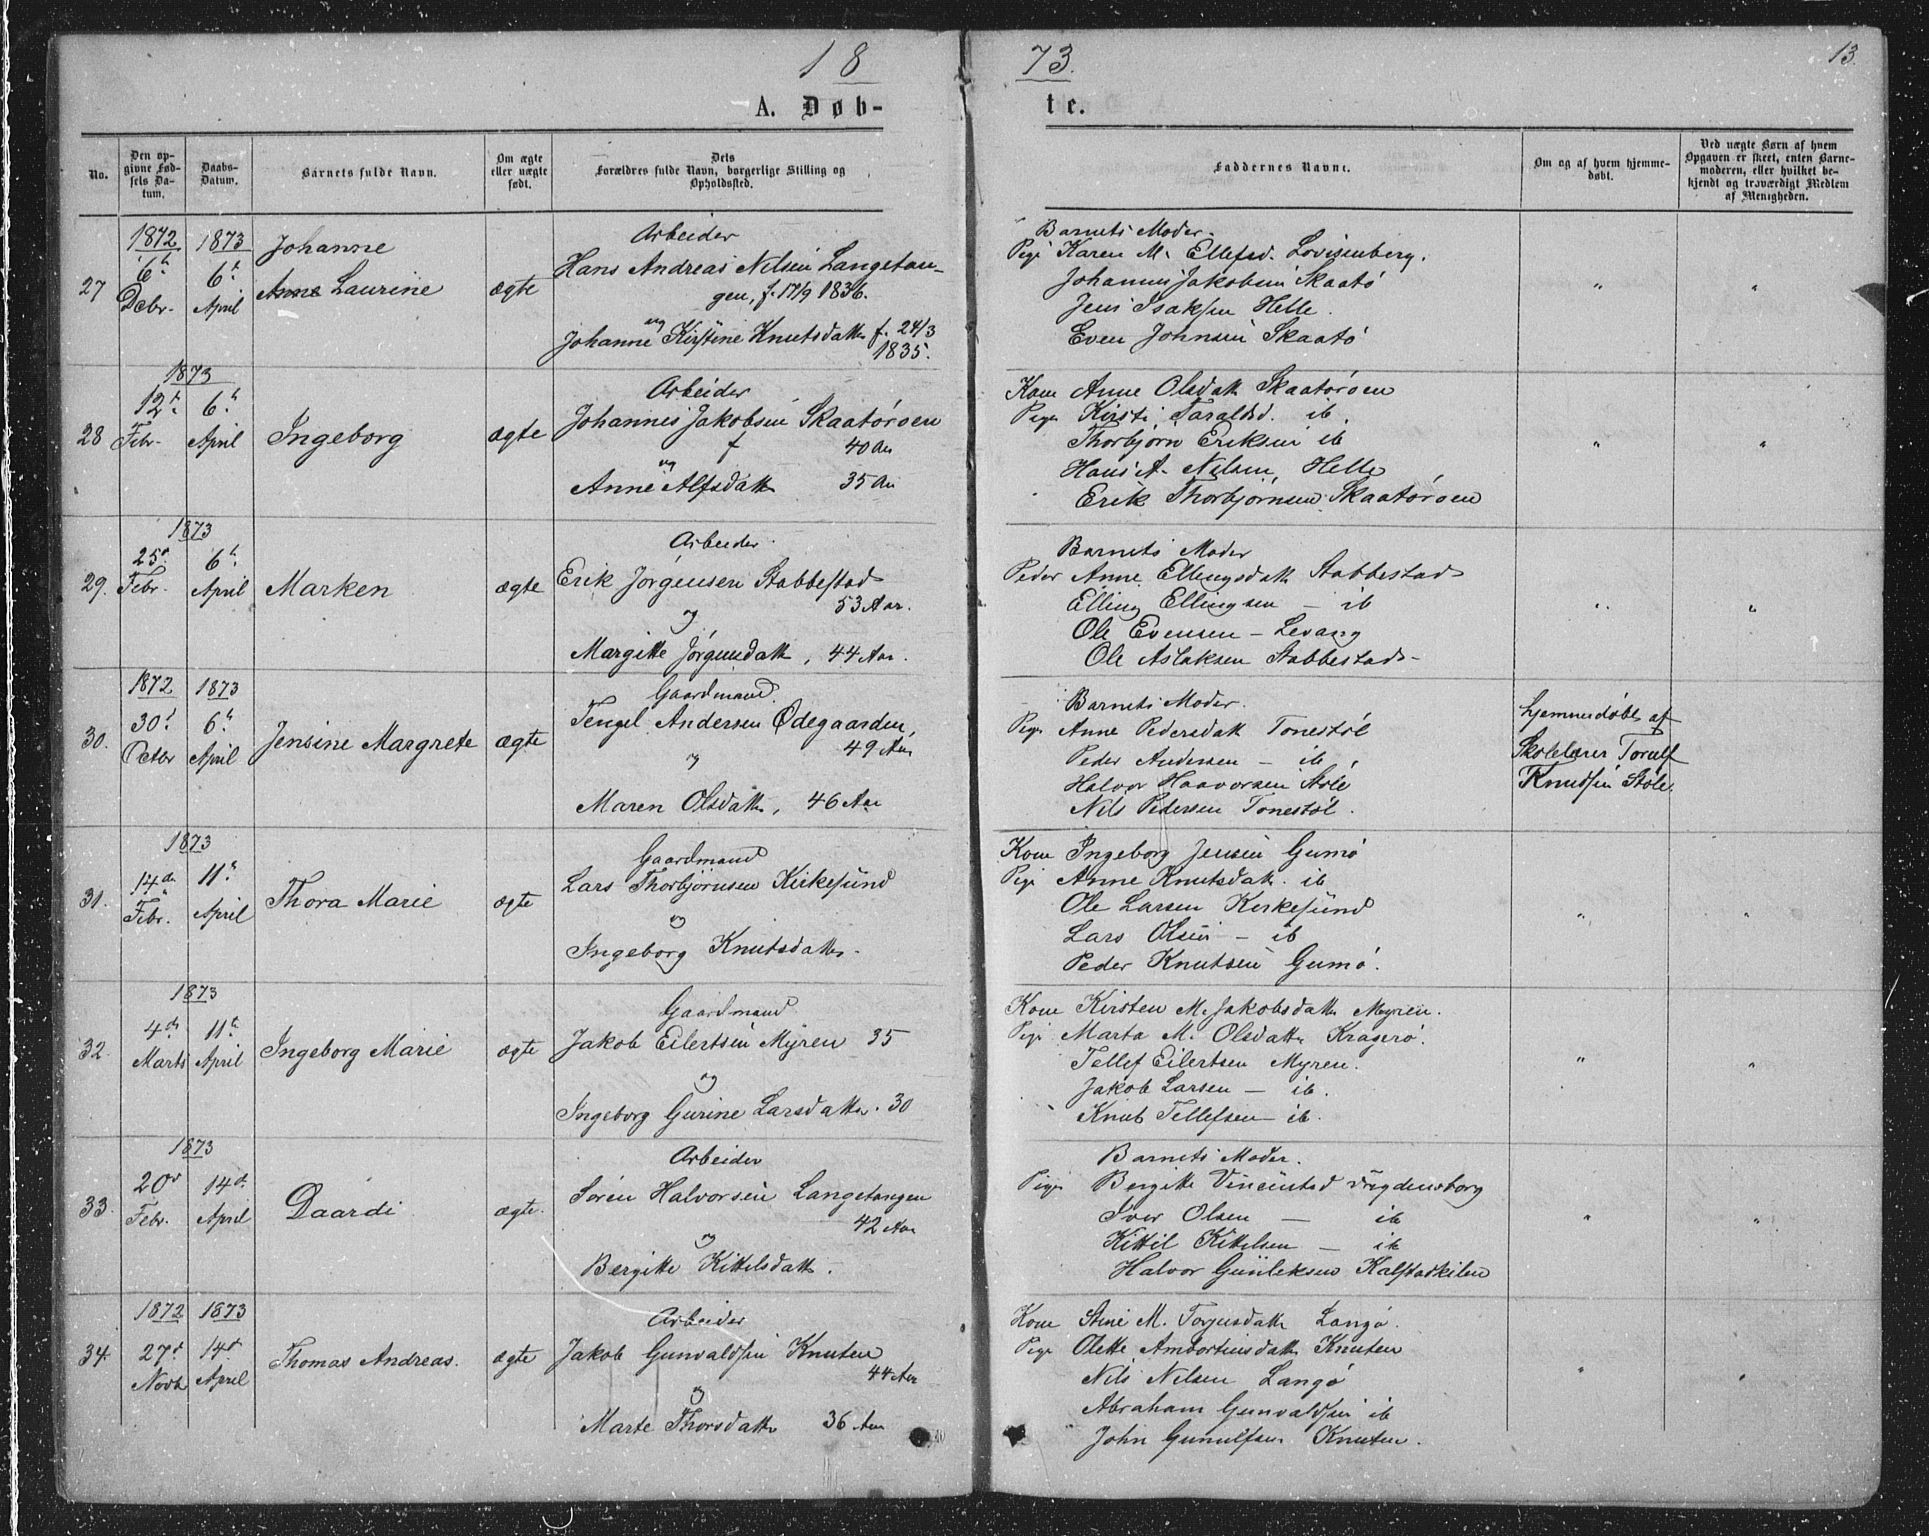 18 73. 13.
A. Døb- te.
No.
Den opgivne Fødsels Datum.
Daabs-Datum.
Barnets fulde Navn.
Om ægte eller uægte født.
Dets Forældres fulde Navn, borgerlige Stilling og Opholdssted.
Faddernes Navne.
Om og af hvem hjemmedøbt.
Ved uægte Børn af hvem Opgaven er skeet, enten Barnemoderen, eller hvilket bekjendt og troværdigt Medlem af Menigheden.
27
1872 6te Decbr.
1873 6te April
Johanne
Anne Laurine
ægte
Arbeider
Hans Andreas Nilsen Langetan-
gen, f. 17/9 1836.
og
Johanne Kirstine Knutsdatter f. 24/3
1835.
Barnets Moder.
Pige Karen M. Ellefsd. Lovisenberg.
Johannes Jakobsen Skaatø
Jens Isaksen Helle.
Even Johnsen Skaatø
"
"
28
1873
12te Febr.
6te April
Ingeborg
ægte
Arbeider
Johannes Jakobsen Skaatørøen
f 40 Aar
og
Anne Alfsdatter 35 Aar
Kone Anne Olsdatter Skaatørøen
Pige Kirsti Taraldsd. ib.
Thorbjørn Eriksen ib
Hans A. Nilsen Helle
Erik Thorbjørnsen Skaatørøen
"
"
29.
1873
25de Febr.
6te April
Marken
ægte
Arbeider
Erik Jørgensen Stabbestad
53 Aar.
og
Margitte Jørgensdatter, 44 Aar.
Barnets Moder
Anne Ellingsdatter Stabbestad
Elling Ellingsen — ib
Ole Evensen – Levang
Ole Aslaksen Stabbestad
"
"
30.
1872 30te
1873 6te April
Jensine Margrete
ægte
Gaardmand
Tengel Andersen Ødegaarden,
49 Aar
og
Maren Olsdatter, 46 Aar
Barnets Moder.
Pige Anne Pedersdatter Tonestøl
Peder Andersen — ib
Halvor Haavorsen Støle
Nils Pedersen Tonestøl.
hjemmedøbt af
Skolelærer Torulf
Knudsen Støle.
31.
1873
14de Febr.
11te April
Thora Marie
ægte
Gaardmand
Lars Thorbjørnsen Kirkesund
og
Ingeborg Knutsdatter.
Kone Ingeborg Jensen Gumø
Pige Anne Knutsdatter. ib
Ole Larsen Kirkesund
Lars Olsen — ib
Peder Knutsen Gumø.
"
"
32.
1873
4de Marts
11te April
Ingeborg Marie
ægte
Gaardmand
Jakob Eilertsen Myren 35
og
Ingeborg Gurine Larsdatter. 30
Kone Kirsten M. Jakobsdatter Myren.
Pige Marta M. Olsdatter Kragerø.
Tellef Eilertsen Myren.
Jakob Larsen — ib.
Knut Tellefsen — ib.
"
"
33.
1873
20de Febr.
14de April
Daardi
ægte.
Arbeider
Søren Halvorsen Langetangen
42 Aar
og
Bergitte Kittelsdatter.
Barnets Moder.
Pige Bergitte
Iver Olsen — ib
Kittil Kittelsen — ib
Halvor Gunleksen Kalstadkilen
"
"
34.
1872 27de Novb
1873 14de April
Thomas Andreas.
ægte
Arbeider
Jakob Gunvaldsen Knuten
44 Aar
og
Marte Thorsdatter 36 Aar
Kone Stine M. Torjusdatter Langø.
Pige Olette Ambortinsdatter Knuten
Nils Nilsen Langø
Abraham Gunvaldsen ib
John Gunulfsen Knuten.
"
"